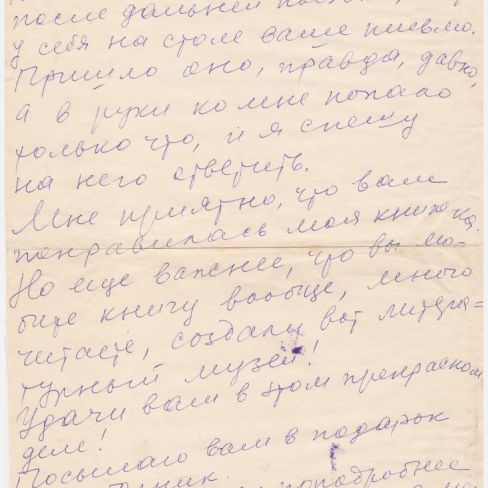 после дальней
у себя на столе ваше письмо.
Пришло оно, правда, давно,
а в руки ко мне попало
только что, и я спешу
на него ответить.
Мне приятно, что вам
понравилась моя книжка.
Но еще важнее, что вы лю-
бите книгу вообще, много
читаете, создали вот литера-
турный музей!
Удачи вам в этом прекрасном
деле!
Посылаю вам в подарок
поподробнее